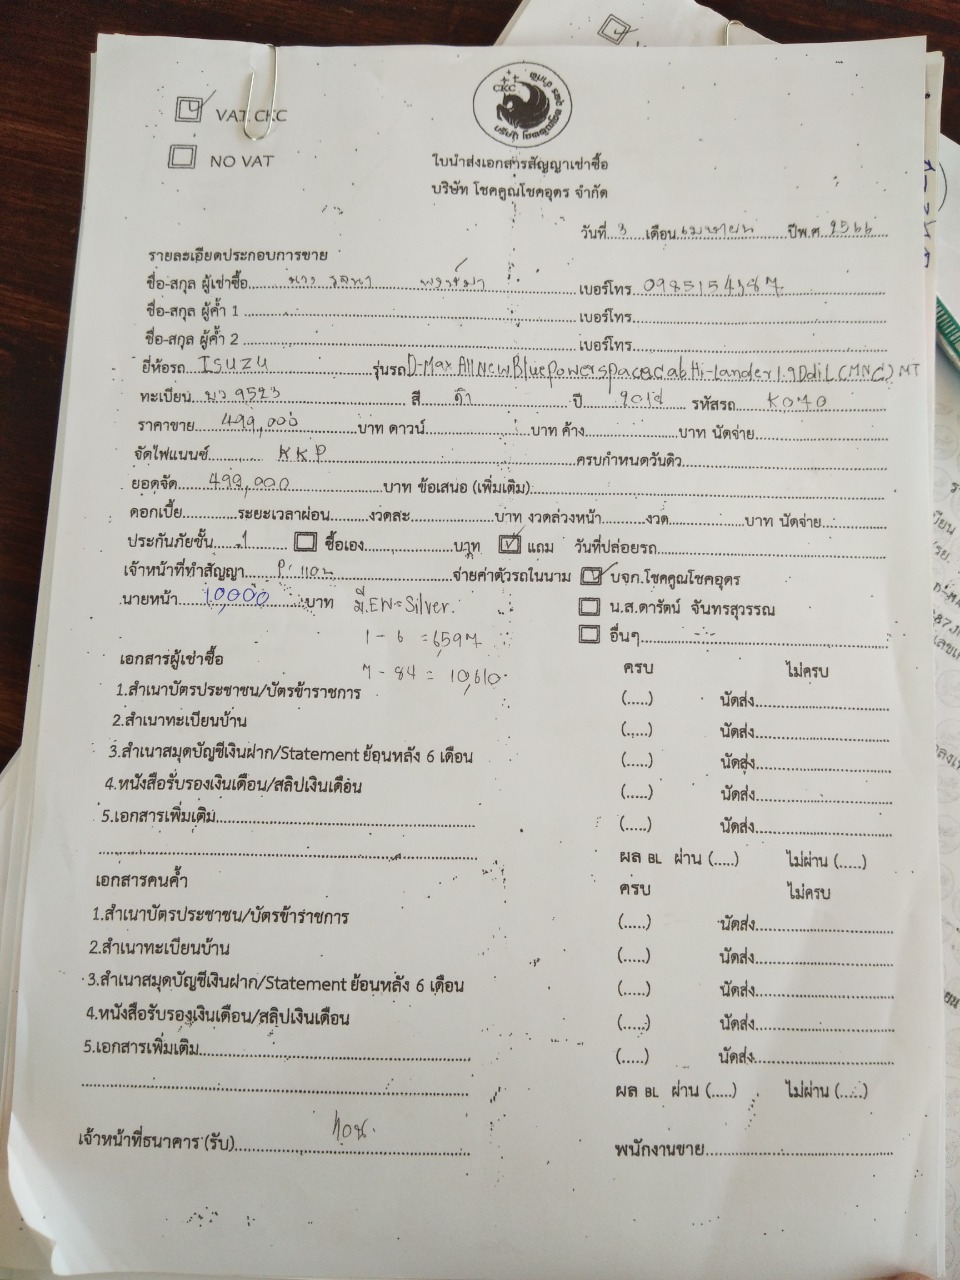 VAT CKC
NO VAT
CKC
ใบนำส่งเอกสารสัญญาเช่าซื้อ
บริษัท โชคคูณโชคอุดร จำกัด
วันที่ 3 เดือน เมษายน ปีพ.ศ. 2566
รายละเอียดประกอบการขาย
ชื่อ-สกุล ผู้เช่าซื้อ นาง เบอร์โทร 0985154387
ชื่อ-สกุล ผู้ค้ำ 1 เบอร์โทร
ชื่อ-สกุล ผู้ค้ำ 2 เบอร์โทร
ยี่ห้อรถ ISUZU รุ่นรถ D-Max All New Bluepower spacecab Hi-Lander 1.9 Ddi L (MNC) MT
ทะเบียน 9523 สี ดำ ปี 2018 รหัสรถ K070
ราคาขาย 499,000 บาท ดาวน์ บาท ค้าง บาท นัดจ่าย
จัดไฟแนนซ์ KKP ครบกำหนดวันดิว
ยอดจัด 499,000 บาท ข้อเสนอ (เพิ่มเติม)
ดอกเบี้ย ระยะเวลาผ่อน งวดละ บาท งวดล่วงหน้า งวด บาท นัดจ่าย
ประกันภัยชั้น 1 ซื้อเอง บาท แถม วันที่ปล่อยรถ
เจ้าหน้าที่ทำสัญญา จ่ายค่าตัวรถในนาม บจก.โชคคูณโชคอุดร
นายหน้า 10,000 บาท มี.EW=Silver. น.ส.ดารัตน์ จันทรสุวรรณ
1-6 = 6,597 อื่นๆ
7-84 = 10,610
เอกสารผู้เช่าซื้อ ครบ ไม่ครบ
1.สำเนาบัตรประชาชน/บัตรข้าราชการ (.....) นัดส่ง
2.สำเนาทะเบียนบ้าน (.....) นัดส่ง
3.สำเนาสมุดบัญชีเงินฝาก/Statement ย้อนหลัง 6 เดือน (.....) นัดส่ง
4.หนังสือรับรองเงินเดือน/สลิปเงินเดือน (.....) นัดส่ง
5.เอกสารเพิ่มเติม (.....) นัดส่ง
ผล BL ผ่าน (.....) ไม่ผ่าน (.....)
เอกสารคนค้ำ ครบ ไม่ครบ
1.สำเนาบัตรประชาชน/บัตรข้าราชการ (.....) นัดส่ง
2.สำเนาทะเบียนบ้าน (.....) นัดส่ง
3.สำเนาสมุดบัญชีเงินฝาก/Statement ย้อนหลัง 6 เดือน (.....) นัดส่ง
4.หนังสือรับรองเงินเดือน/สลิปเงินเดือน (.....) นัดส่ง
5.เอกสารเพิ่มเติม (.....) นัดส่ง
ผล BL ผ่าน (.....) ไม่ผ่าน (.....)
เจ้าหน้าที่ธนาคาร (รับ) พนักงานขาย